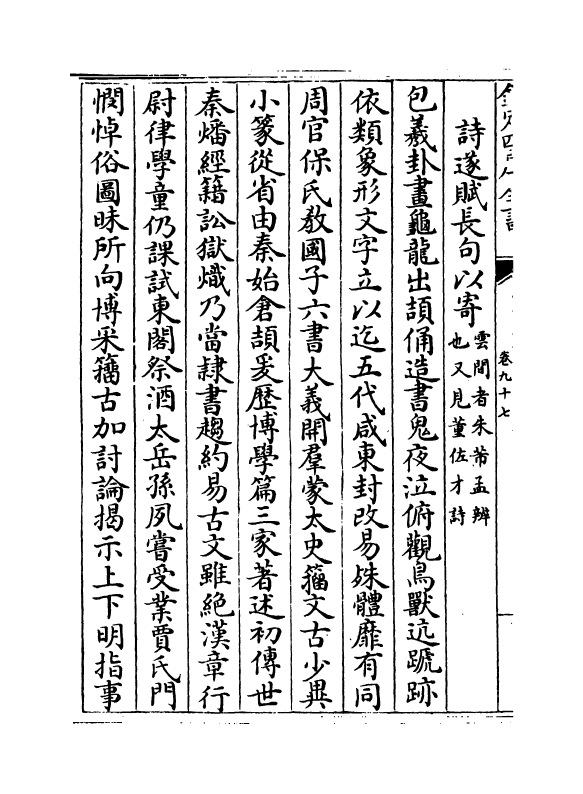 欽定四庫全書
卷九十七
詩遂賦長句以寄雲間者朱芾孟辨
也又見董佐才詩
包羲卦畫龜龍出頡俑造書鬼夜泣俯觀鳥獸迒蹏跡
依類象形文字立以迄五代咸東封改易姝體靡有同
周官保氏教國子六書大義開羣蒙太史籕文古少異
小篆從省由秦始倉頡爰歷博學篇三家著述初傳世
秦燔經籍訟獄熾乃當隷書趨約易古文雖絶漢章行
尉律學童仍課試東閣祭酒太岳孫夙嘗受業賈氏門
憫悼俗圖昧所向博采籕古加討論揭示上下明指事